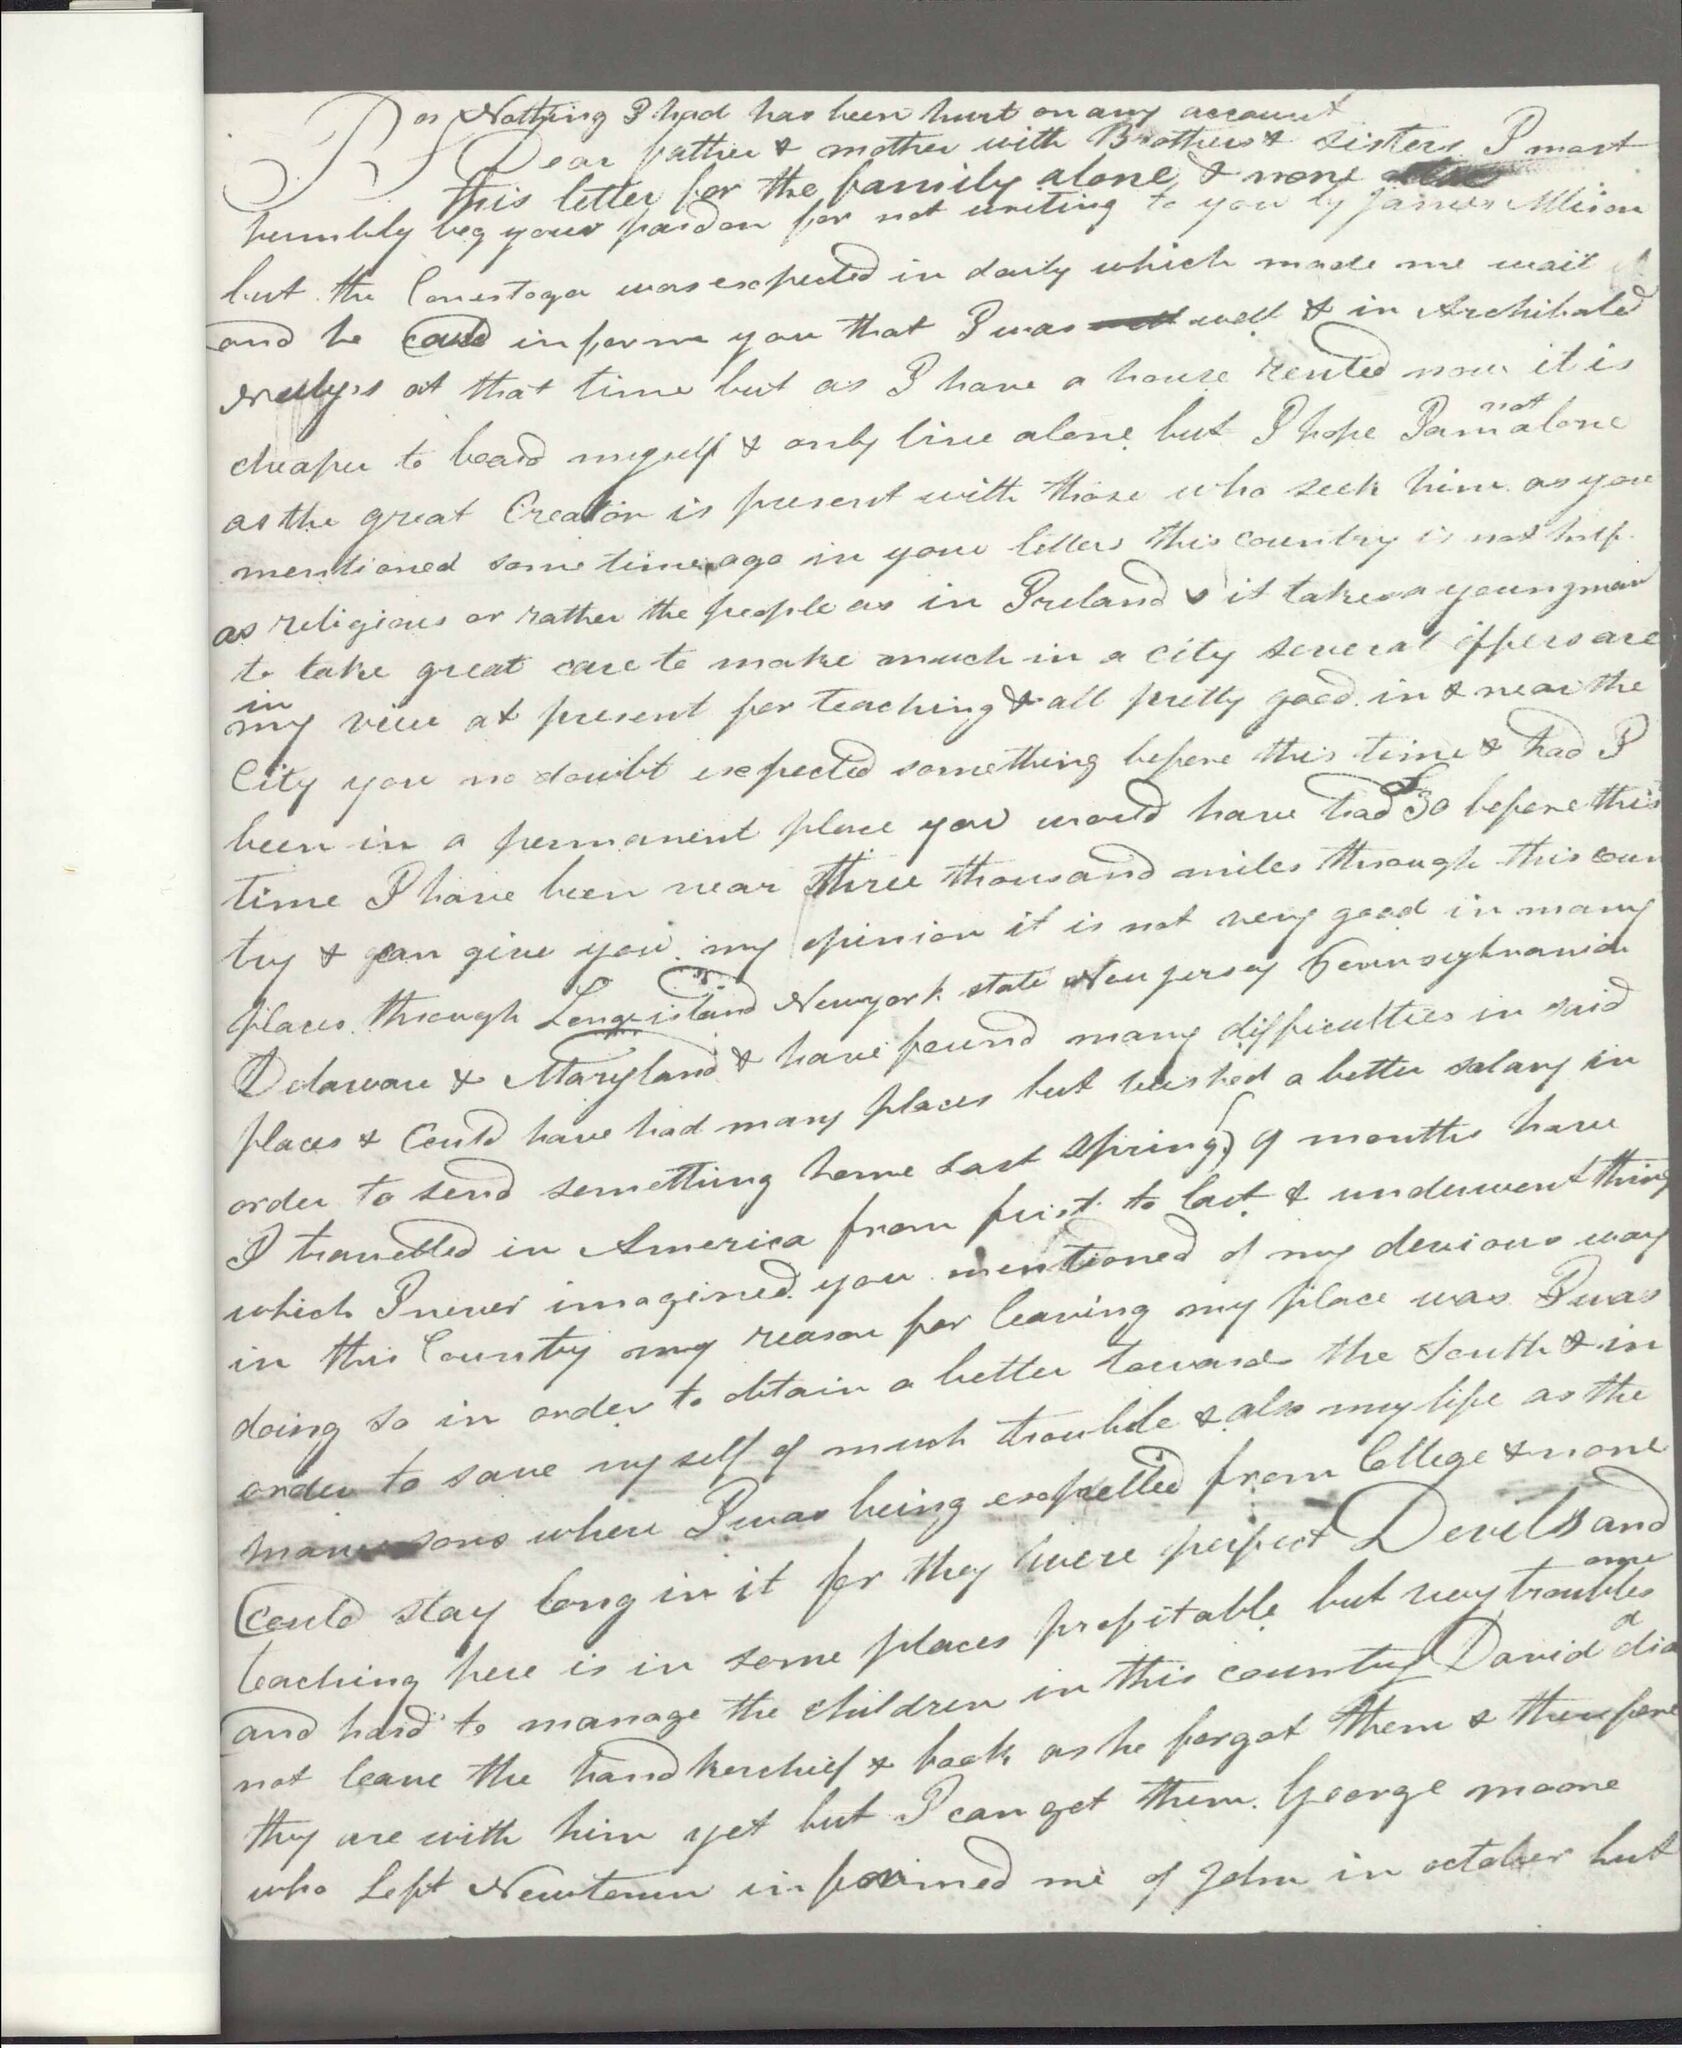 as Nothing I had has been hurt on any account
Dear father & mother with Brothers & sisters I most
this letter for the family alone & none else
humbly beg your pardon for not writing to you by James Allison
but the Conestoga was expected in daily which made me wait
and he could inform you that I was well & in Archibald
at that time but as I have a house rented now it is
cheaper to board myself & only live alone but I hope I am not alone
as the great Creator is present with those who seek him as you
mentioned some time ago in your letters this country is not half
as religious or rather the people as in Ireland & it takes a young man
to take great care to make much in a city several offers are
in my view at present for teaching & all pretty good in & near the
City you no doubt expected something before this time & had I
been in a permanent place you would have had £30 before this
time I have been near three thousand miles through this coun
try & can give you my opinion it is not very good in many
places through Longisland Newyork state New jersey Pennsylvania
Delaware & Maryland & have found many difficulties in said
places & Could have had many places but wished a better salary in
order to send something home last Spring 9 months have
I travelled in America from first to last & underwent things
which I never imagined you mentioned of my devious way
in this Country my reason for leaving my place was I was
doing so in order to obtain a better towards the South & in
order to save my self of much trouble & also my life as the
sons where I was being expelled from College & none
Could stay long in it for they were perfect Devils and
teaching here is in some places profitable but very troublesome
and hard to manage the children in this country David did
not leave the handkerchief & book as he forgot them & therefore
they are with him yet but I can get them. George moore
who Left Newtown informed me of John in october but